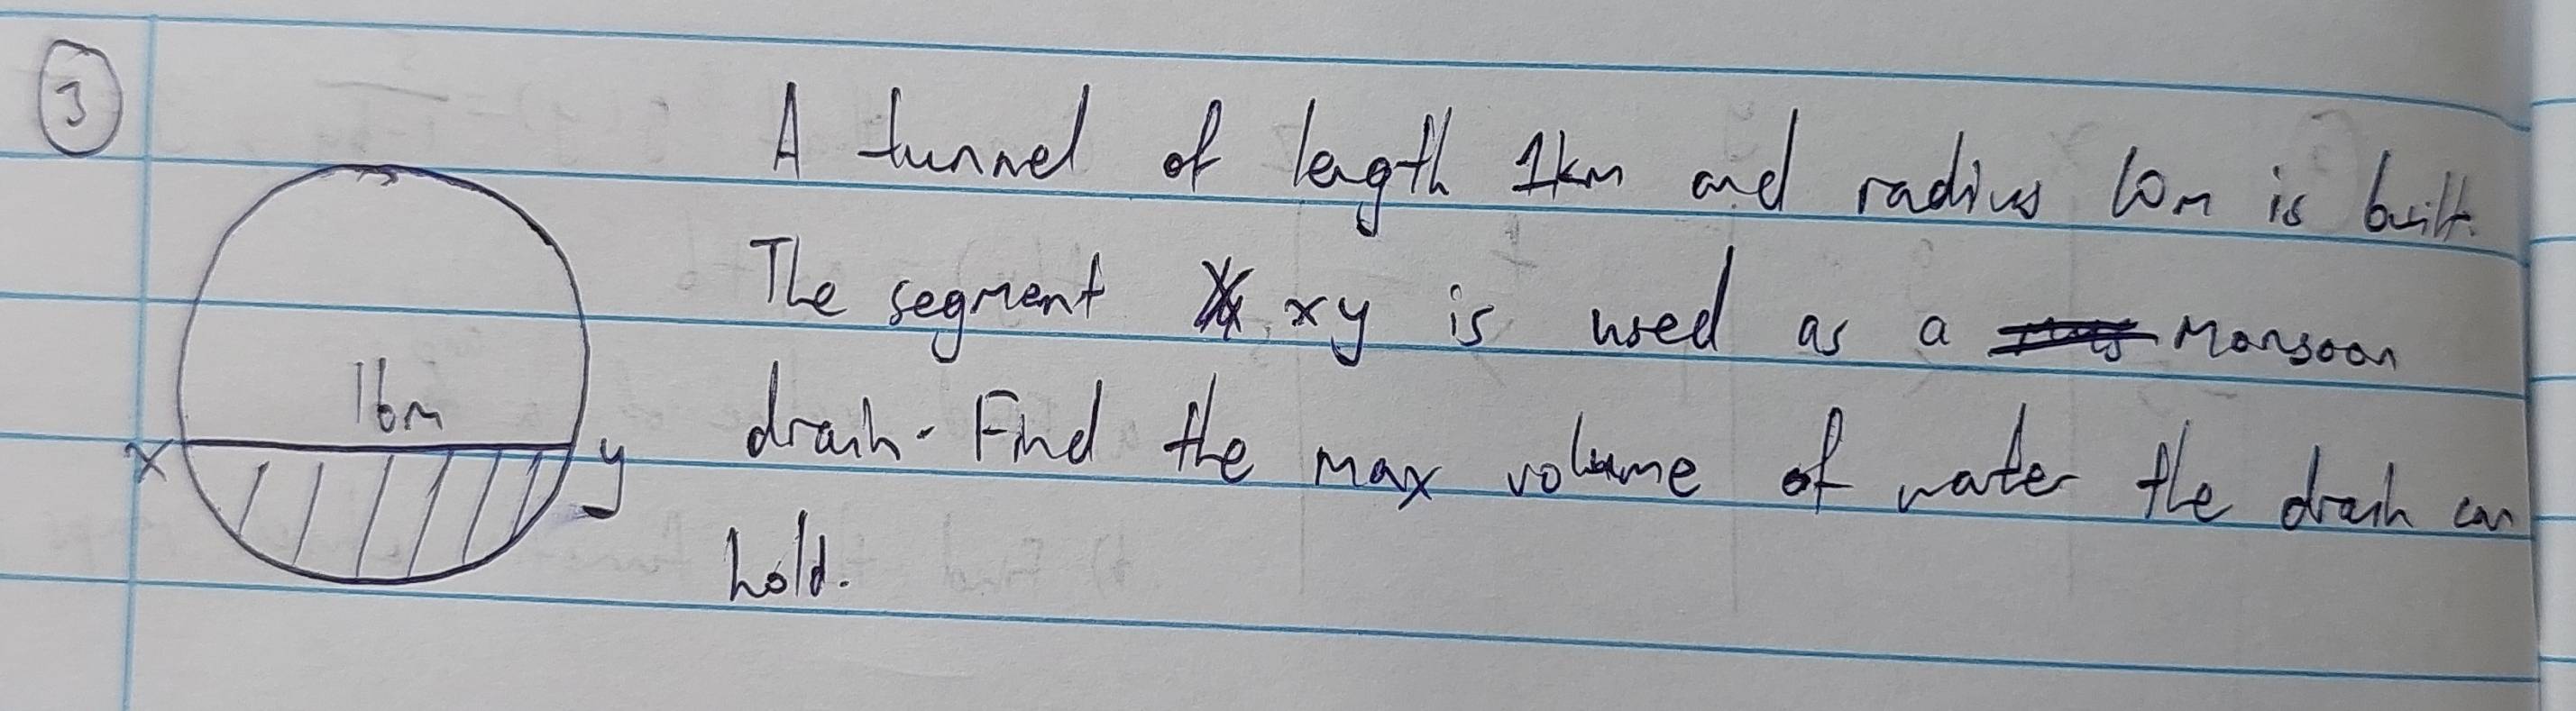 3
A tunnel of length 1km and radius 10m is built.
The segment xy is used as a monsoon
16m
x y
drain. Find the max volume of water the drain can
hold.